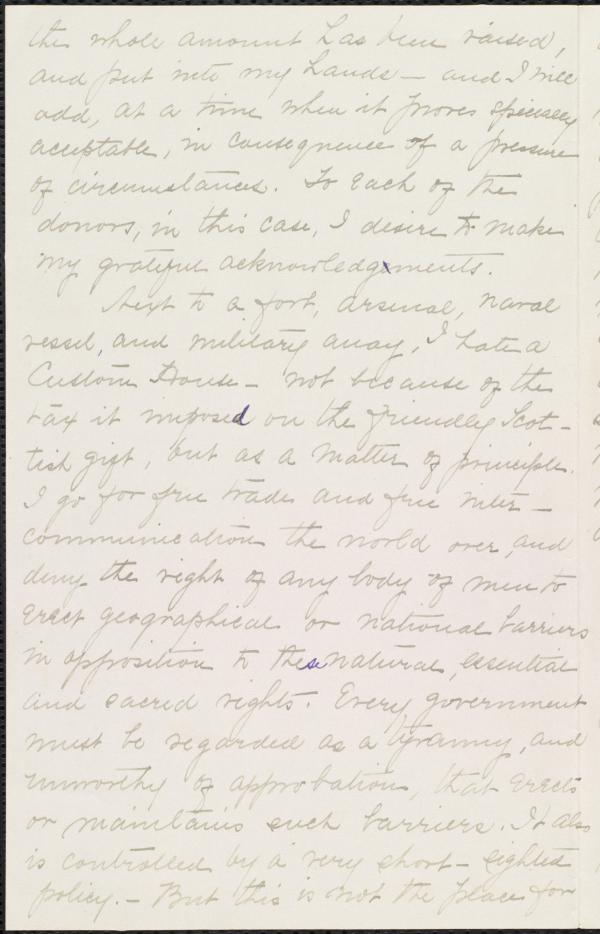 the whole amount has been raised,
and put into my hands — and I will
add, at a time when it proves specially
acceptable, in consequence of a pressure
of circumstances. To each of the
donors, in this case, I desire to make
my grateful acknowledgements.
Next to a fort, arsenal, naval
vessel, and military array, I hate a
Custom House — not because of the
tax it imposed on the friendly Scot-
tish gift, but as a matter of principle.
I go for free trade and free inter-
communication the world over, and
deny the right of any body of men to
erect geographical or national barriers
in opposition to these natural, essential
and sacred rights. Every government
must be regarded as a tyranny, and
unworthy of approbation, that erects
or maintains such barriers. It also
is controlled by a very short-sighted
policy. — But this is not the place for